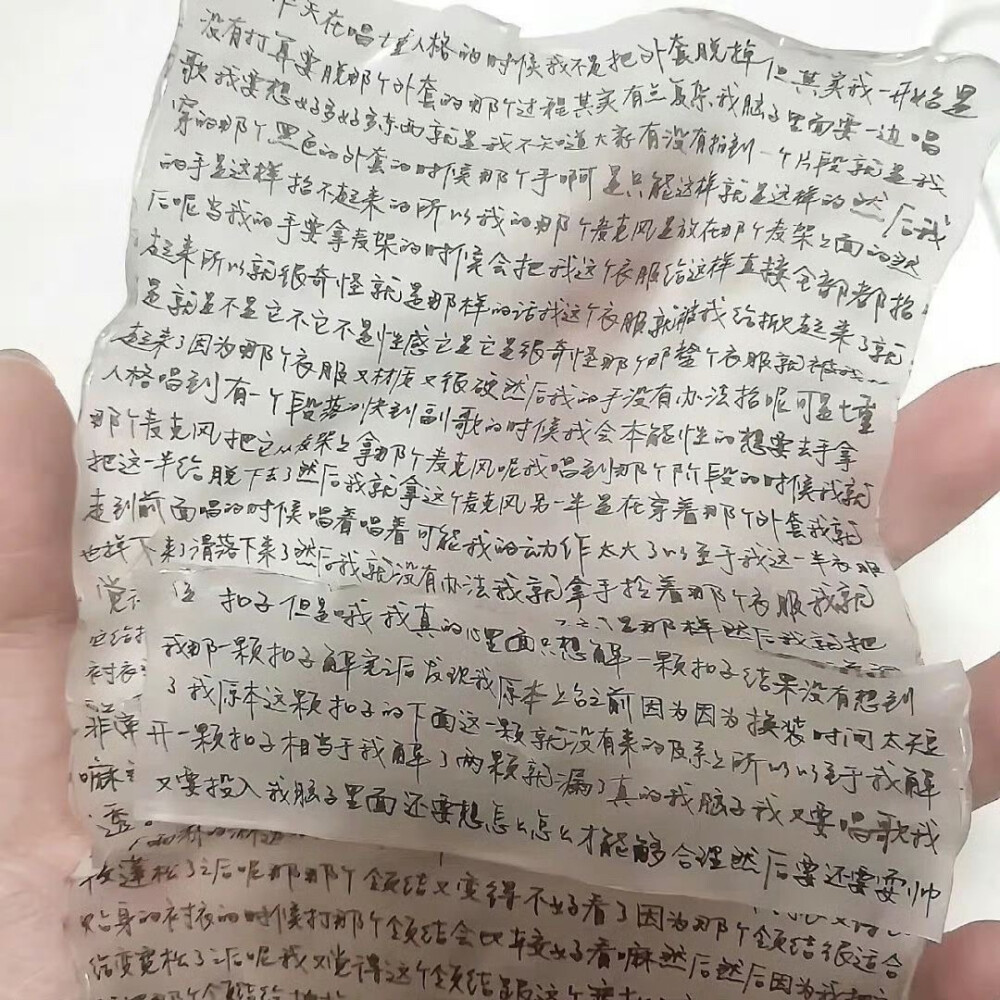 昨天在唱七重人格的时候我不是把外套脱掉但其实我一开始是
没有打算要脱那个外套的那个过程其实有点复杂我脑子里面要一边唱
歌我要想好多好多东西就是我不知道大家有没有拍到一个片段就是我
穿的那个黑色的外套的时候那个手啊可是只能这样就是这样的然后我
的手是这样抬不起来的所以我的那个麦克风是放在那个麦架上面的然
后呢当我的手要拿麦架的时候会把我这个衣服给这样直接全部都抬
起来所以就很奇怪就是那样的话我这个衣服就被我给掀起来了就
是就是不是它不它不是性感它是它是很奇怪那个那整个衣服就被我
起来了因为那个衣服又材质又很硬然后我的手没有办法抬呢可是七重
人格唱到有一个段落快到副歌的时候我会本能性的想要去手拿
那个麦克风把它从麦架上拿那个麦克风呢我唱到那个阶段的时候我就
把这一半给脱下去了然后我就拿这个麦克风另一半是在穿着那个外套我就
走到前面唱的时候唱着唱着可能我的动作太大了以至于我这一半衣服
也掉下来了滑落下来了然后我就没有办法我就拿手拎着那个衣服我就
觉
是那样然后我就把
这扣子但是哦我我真的心里面只想解一颗扣子结果没有想到
我那一颗扣子解完之后发现我原本上台之前因为因为换装时间太短
了我原本这颗扣子的下面这一颗就没有来的及系上所以以至于我解
开一颗扣子相当于我解了两颗就漏了真的我脑子我又要唱歌我
又要投入我脑子里面还要想怎么怎么才能够合理然后要还要耍帅
它给
衬衣
非常
嘛
透
松蓬松了之后呢那那个领结又变得不好看了因为那个领结很适合
贴身的衬衣的时候打那个领结会比较好看嘛然后然后因为我把
给变宽松了之后呢我又觉得这个领结跟这个